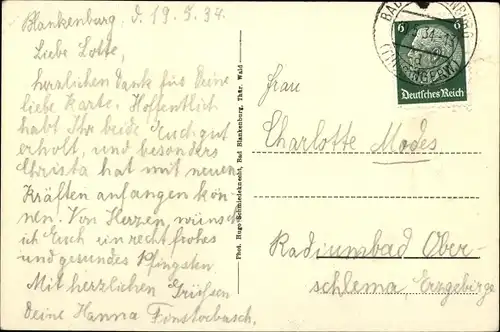 Blankenburg, d. 19. 5. 34.
Liebe Lotte,
herzlichen Dank für Deine
liebe Karte. Hoffentlich
habt Ihr beide Euch gut
erholt, und besonders
Christa hat mit neuen
Kräften anfangen kön-
nen. Von Herzen, wünsch
ich Euch ein recht frohes
und gesundes Pfingsten.
Mit herzlichen Grüßen
Deine Hanna
Phot. Hugo Schmiedeknecht, Bad Blankenburg, Thür. Wald
BAD BLANKENBURG
(THÜRINGERW)
6 6
Deutsches Reich
Frau
Charlotte Modes
Radiumbad Ober-
schlema Erzgebirge